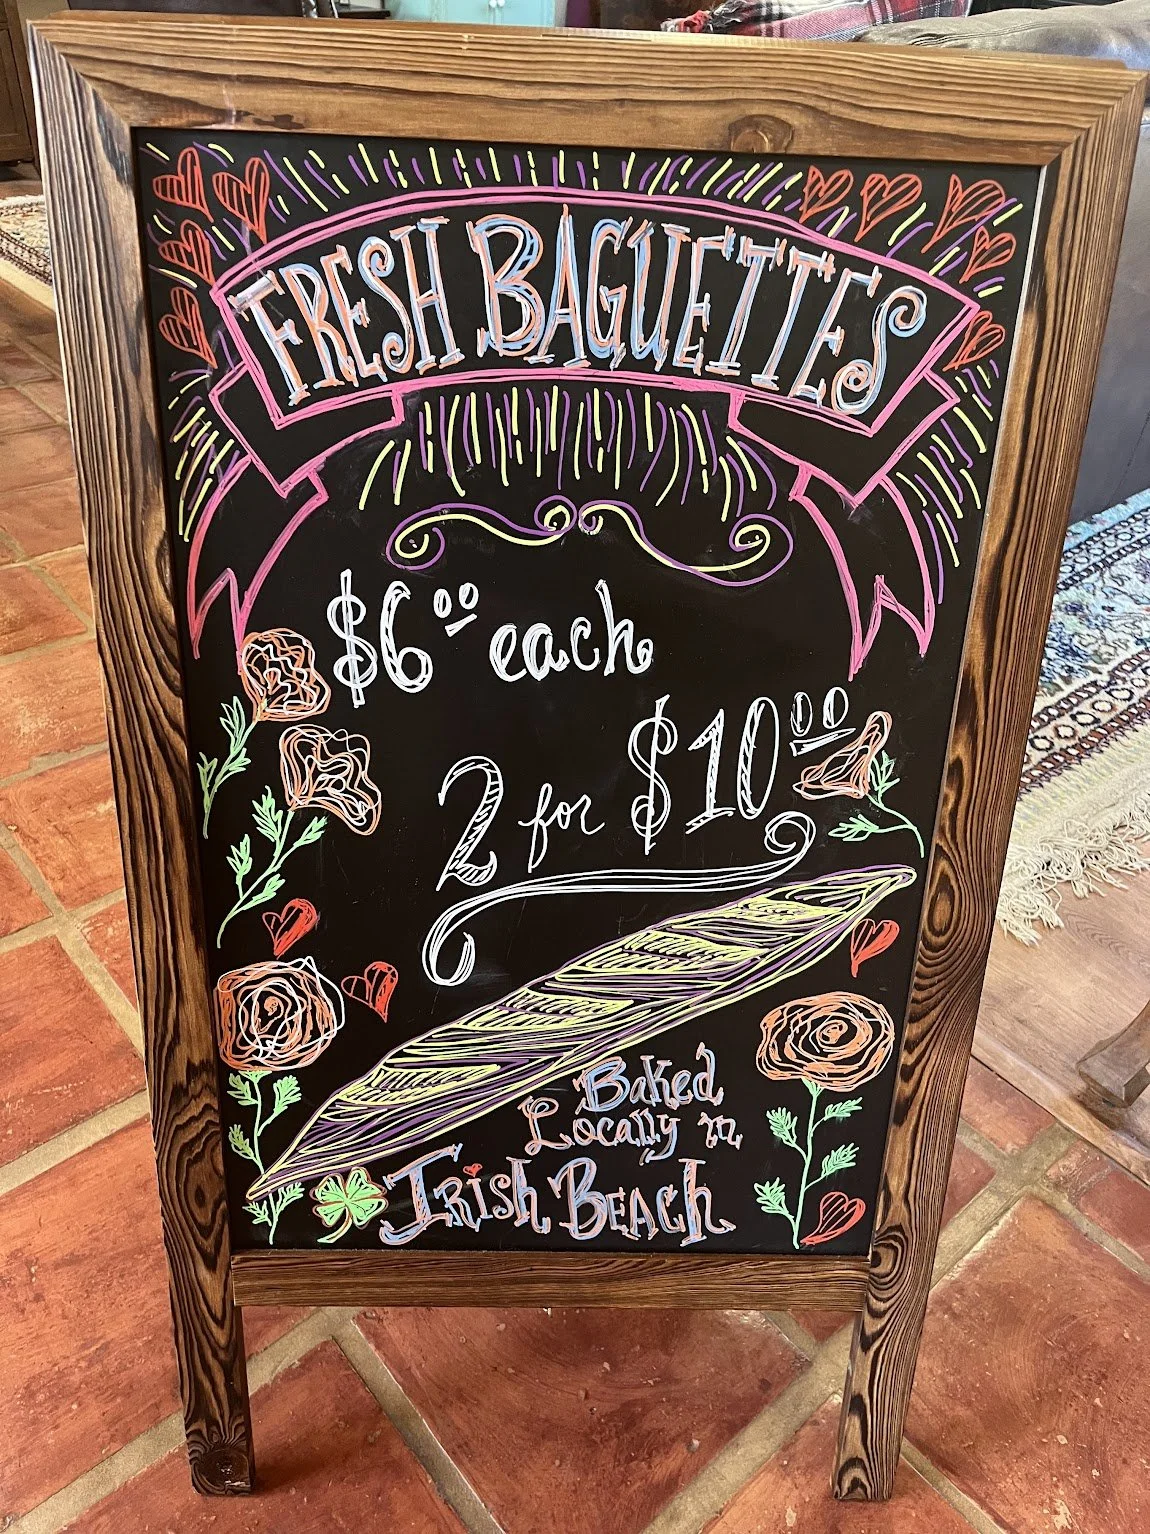 FRESH BAGUETTES
$6.00 each
2 for $10.00
Baked
Locally in
IRISH BEACH